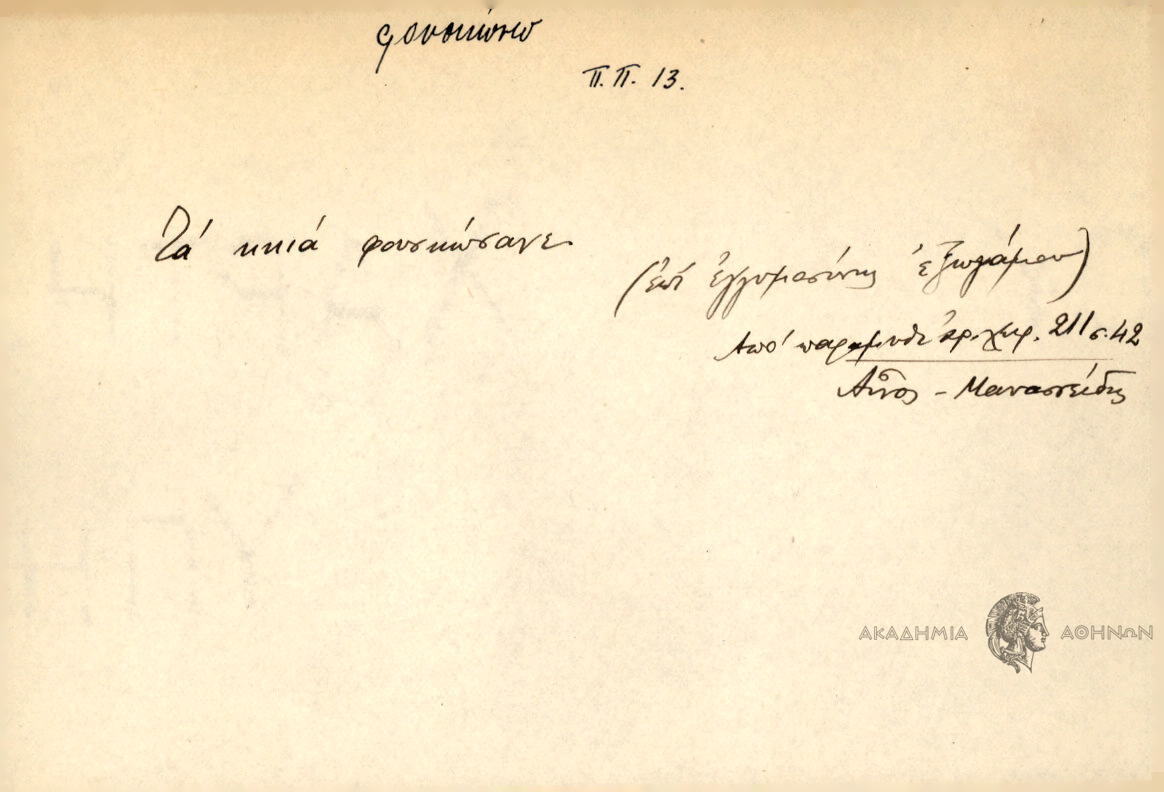 φουσκώνω
Π.Π. 13.
Τά κκιά φουσκώσανε
(ἐπί ἐγγυμοσύνης ἐξωγάμου)
Ἀπό παραμυθ. ἀρ. χειρ. 211 σ. 42
Αἶνος - Μανασσείδης
ΑΚΑΔΗΜΙΑ ΑΘΗΝΩΝ